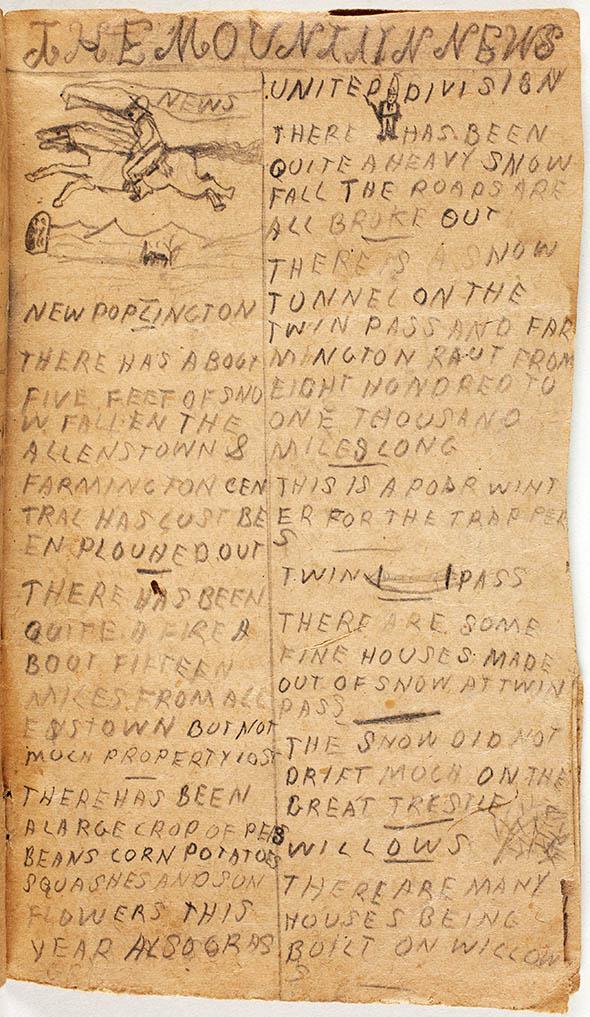 THE MOUNTAIN NEWS
NEWS
NEW POPLINGTON
THERE HAS ABOUT
FIVE FEET OF SNO
W FALLEN THE
ALLENSTOWN &
FARMINGTON CEN
TRAL HAS LUST BE
EN PLOUHED OUT
THERE HAS BEEN
QUITE A FIRE A
BOUT FIFTEEN
MILES FROM ALL
ENSTOWN BUT NOT
MUCH PROPERTY LOST
THERE HAS BEEN
A LARGE CROP OF PEAS
BEANS CORN POTATOES
SQUASHES AND SUN
FLOWERS THIS
YEAR ALSO GRAS
UNITED DIVISION
THERE HAS BEEN
QUITE A HEAVY SNOW
FALL THE ROADS ARE
ALL BROKE OUT
THERE IS A SNOW
TUNNEL ON THE
TWIN PASS AND FAR
MINGTON RAUT FROM
EIGHT HONDRED TO
ONE THOUSAND
MILES LONG
THIS IS A POOR WINT
ER FOR THE TRAPPER
S
TWIN PASS
THERE ARE SOME
FINE HOUSES MADE
OUT OF SNOW AT TWIN
PASS
THE SNOW DID NOT
DRIFT MUCH ON THE
GREAT TRESTLE
WILLOWS
THERE ARE MANY
HOUSES BEING
BUILT ON WILLOW
S